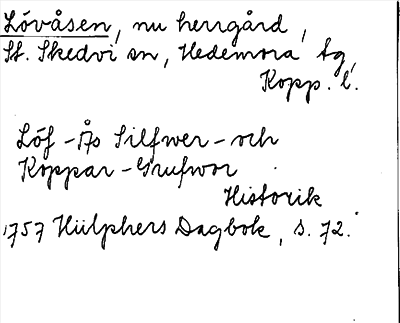 Lövåsen, nu herrgård,
St. Skedvi sn, Hedemora tg,
Kopp. l.
Löf-Ås Silfwer- och
Koppar-Grufwor
Historik
1757 Hülphers Dagbok, s. 72.